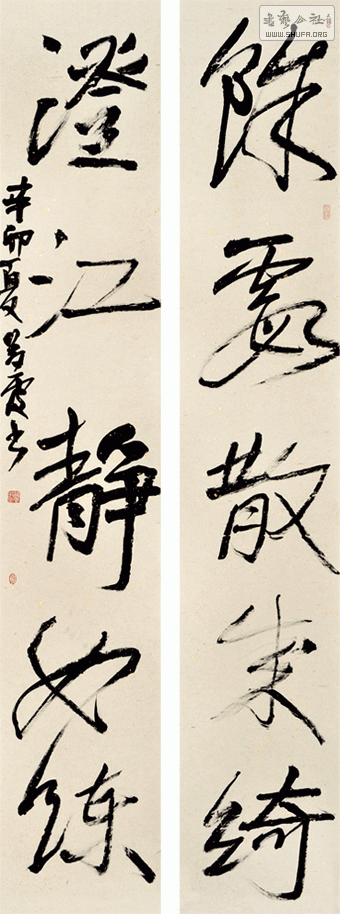 書藝公社
WWW.SHUFA.ORG
餘霞散成綺
澄江静如練
辛卯夏